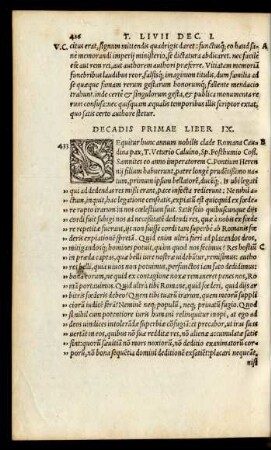 426 T. LIVII DEC. I.
V.C. citus erat, signum mittendis quadrigis daret: functusq́; eo haud sanè A
nè memorandi imperij ministerio, se dictatura abdicaret. nec facilè
est aut rem rei, aut authorem authori præferre. Vitiatam memoriā
funebribus laudibus reor, falsisq́; imaginum titulis, dum familiæ ad
se quæque famam rerum gestarum honorumq́; fallente mendacio
trahunt. inde certè & singulorum gesta, & publica monumenta re-
rum confusa: nec quisquam æqualis temporibus illis scriptor extat,
quo satis certo authore stetur.
DECADIS PRIMAE LIBER IX.
433 SEquitur hunc annum nobilis clade Romana Cau
dina pax, T. Veturio Caluino, Sp. Posthumio Coss.
Samnites eo anno imperatorem C. Pontium Heren
nij filium habuerunt, patre longè prudentissimo na-
tum, primum ipsum bellatorē, ducēq́;. Is ubi legati
qui ad dedendas res missi erant, pace infecta redierunt: Ne nihil a-
ctum, inquit, hac legatione censeatis, expiatum est quicquid ex fœde
re rupto irarum in nos cælestium fuit. Satis scio quibuscunque dijs
cordi fuit subigi nos ad necessitatē dedendi res, quæ ab nobis ex fœ
dere repetitæ fuerant, ijs non fuisse cordi tam superbè ab Romanis fœ-
deris expiationē spretā. Quid enim ultrà fieri ad placandos deos,
mitigandosq́; homines potuit, quàm quod nos fecimus? Res hostiū
in præda captas, quæ belli iure nostræ uidebātur, remisimus: autho
res belli, quia uiuos non potuimus, perfunctos iam fato dedidimus:
bona eorum, ne quid ex contagione noxæ remaneret penes nos, Ro
mā portauimus. Quid ultrà tibi Romane, quid fœderi, quid dijs ar
bitris fœderis debeo? Quem tibi tuarū irarum, quem meorū suppli
ciorū iudicē ferā? Neminē neq́; populū, neq́; priuatū fugio. Quòd
si nihil cum potentiore iuris humani relinquitur inopi, at ego ad
deos uindices intolerādæ superbiæ cōfugiā: et precabor, ut iras suas
uertant in eos, quibus nō suæ redditæ res, nō alienæ accumulatæ satis
sint: quorū sæuitiā nō mors noxiorū, nō deditio exanimatorū cor-
porū, nō bona sequētia domini deditionē exsatiēt: placari nequeāt,
nisi